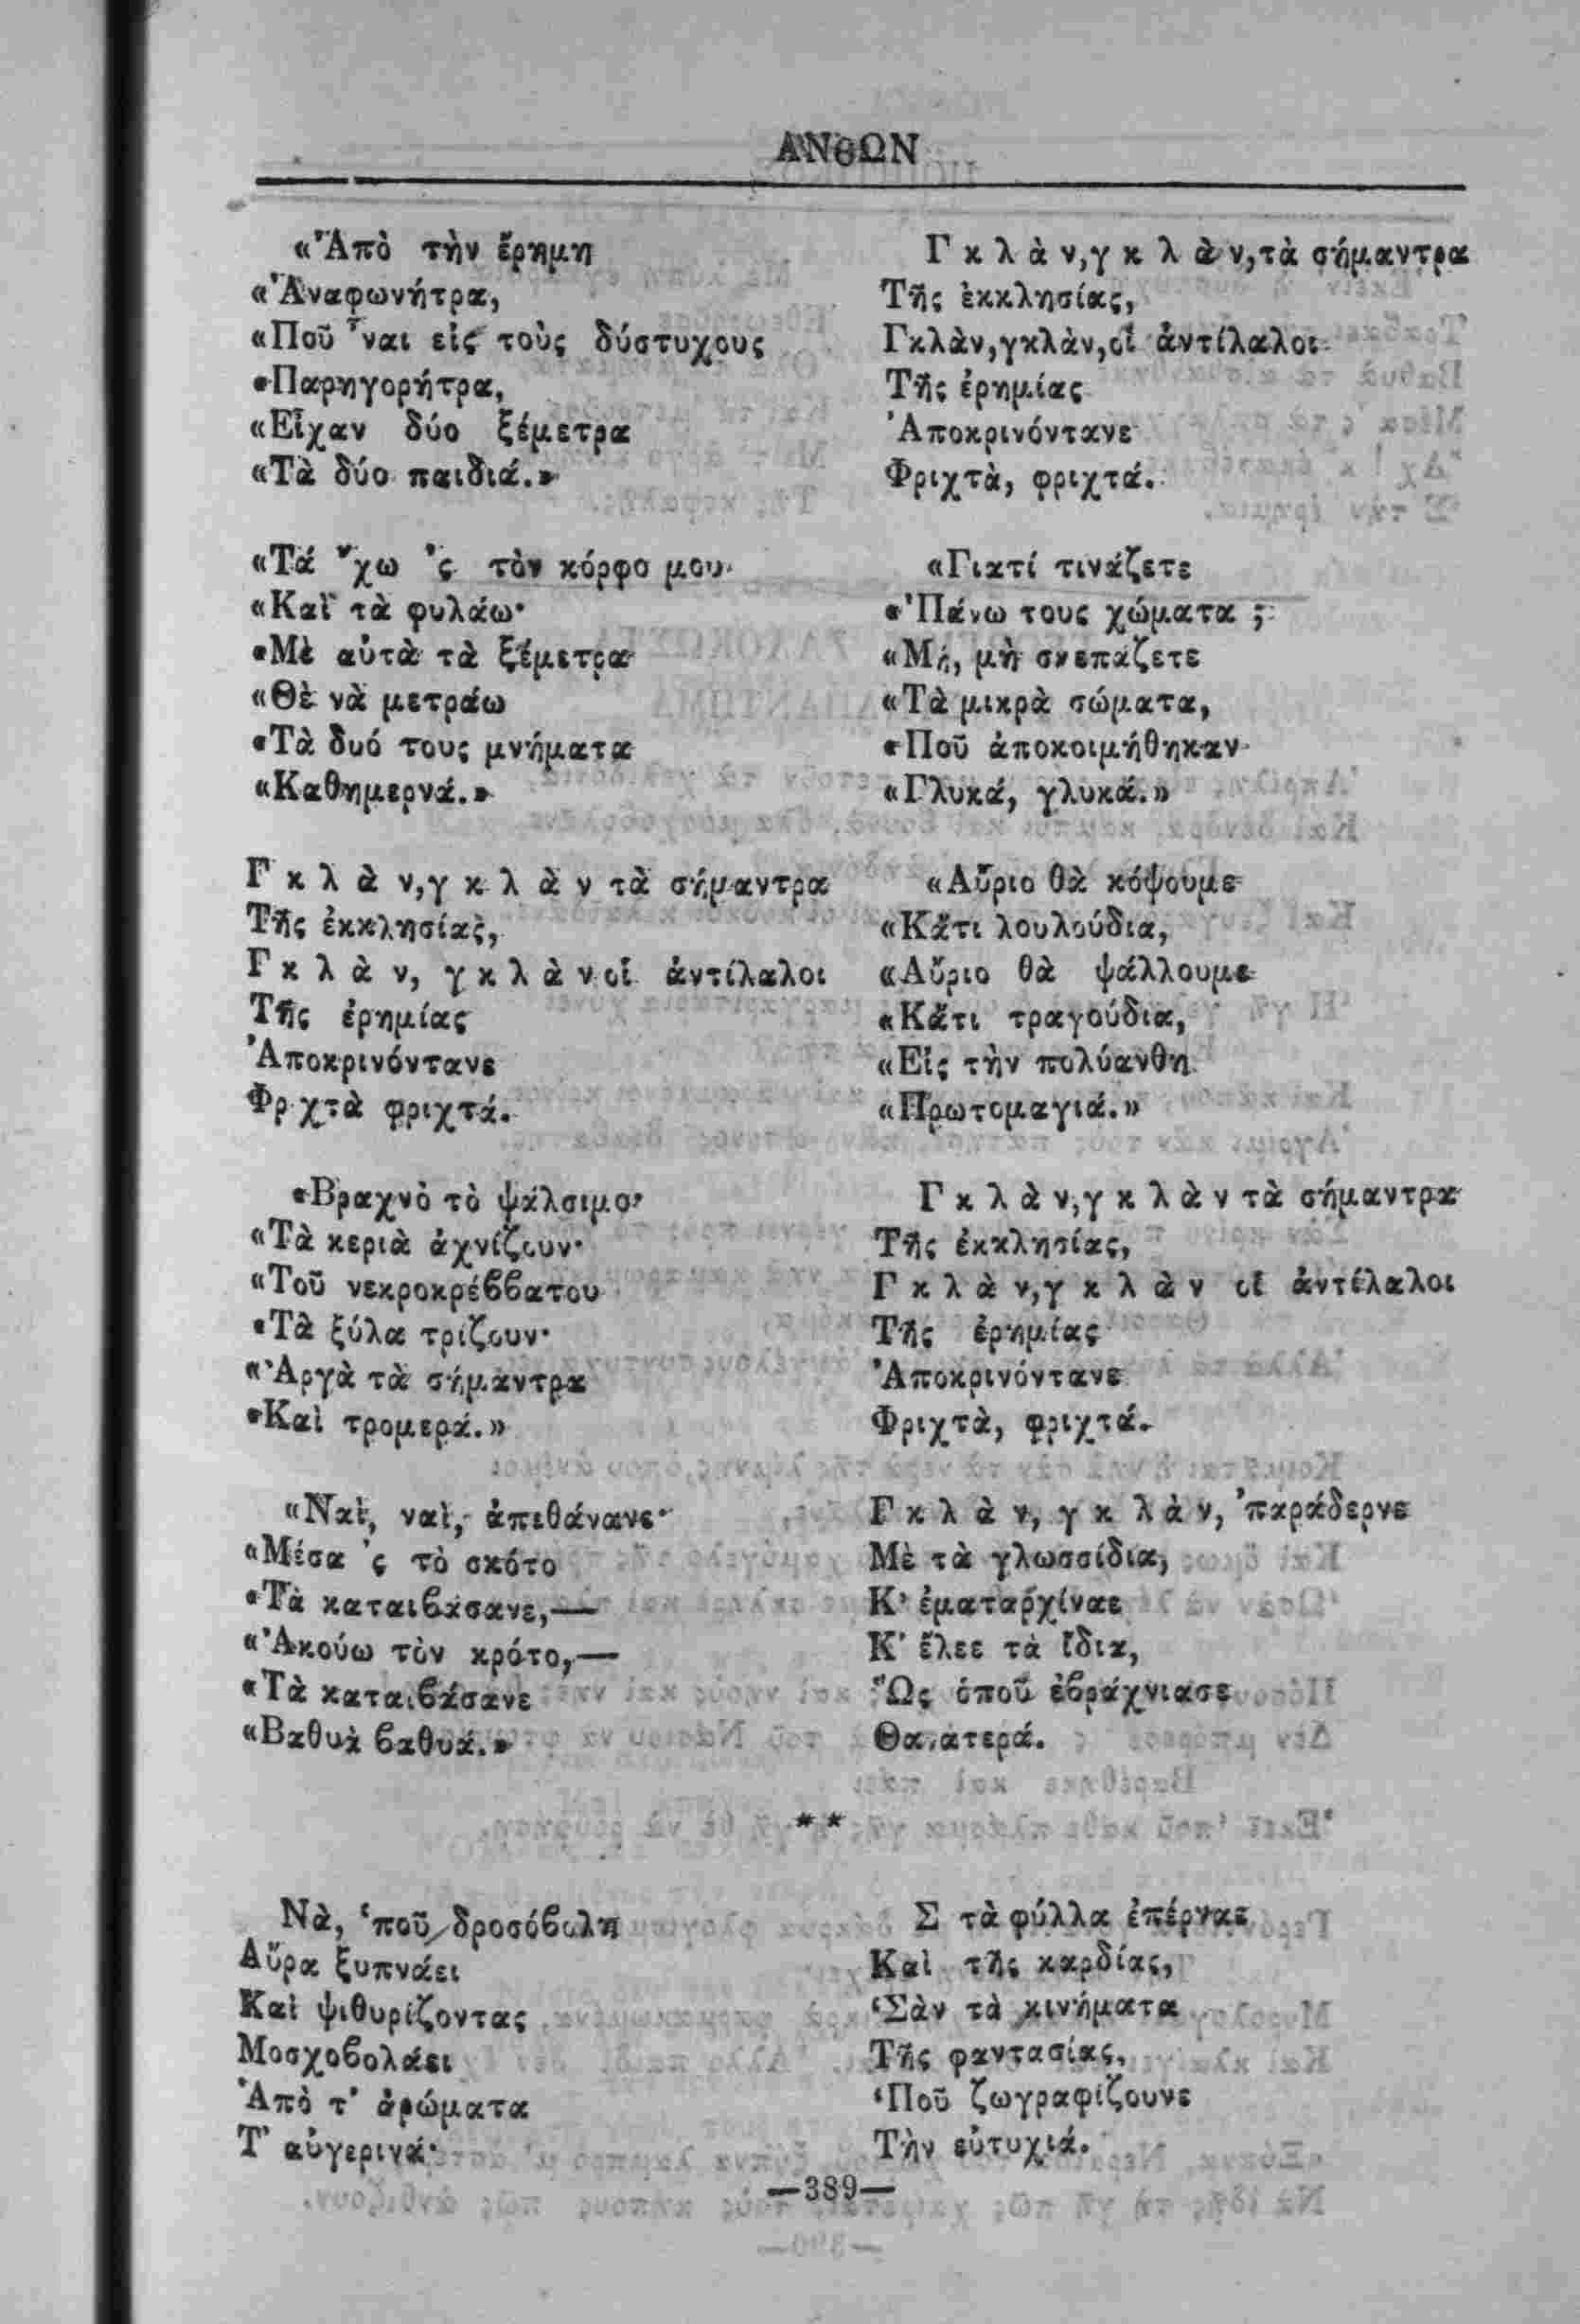 ΑΝΘΩΝ
«Ἀπὸ τὴν ἔρημη
«Ἀναφωνήτρα,
«Ποῦ ᾿ναι εἰς τοὺς δύστυχους
«Παρηγορήτρα,
«Εἶχαν δύο ξέμετρα
«Τὰ δύο παιδιά.»
«Τά ᾿χω ᾿ς τὸν κόρφο μου
«Καὶ τὰ φυλάω·
«Μὲ αὐτὰ τὰ ξέμετρα
«Θὲ νὰ μετράω
«Τὰ δυό τους μνήματα
«Καθημερνά.»
Γκλὰν,γκλὰν τὰ σήμαντρα
Τῆς ἐκκλησίας,
Γκλὰν, γκλὰν οἱ ἀντίλαλοι
Τῆς ἐρημίας
Ἀποκρινόντανε
Φριχτὰ φριχτά.
«Βραχνὸ τὸ ψάλσιμο·
«Τὰ κεριὰ ἀχνίζουν·
«Τοῦ νεκροκρέββατου
«Τὰ ξύλα τρίζουν·
«Ἀργὰ τὰ σήμαντρα
«Καὶ τρομερά.»
«Ναὶ, ναὶ, ἀπιθάνανε·
«Μέσα ᾿ς τὸ σκότο
«Τὰ καταιβάσανε,—
«Ἀκούω τὸν κρότο,—
«Τὰ καταιβάσανε
«Βαθυὰ βαθυά.»
Γκλὰν,γκλὰν,τὰ σήμαντρα
Τῆς ἐκκλησίας,
Γκλὰν,γκλὰν,οἱ ἀντίλαλοι
Τῆς ἐρημίας
Ἀποκρινόντανε
Φριχτὰ, φριχτά.
«Γιατί τινάζετε
«᾿Πάνω τους χώματα ;
«Μή, μὴ σκεπάζετε
«Τὰ μικρὰ σώματα,
«Ποῦ ἀποκοιμήθηκαν
«Γλυκά, γλυκά.»
«Αὔριο θὰ κόψουμε
«Κἄτι λουλούδια,
«Αὔριο θὰ ψάλλουμε
«Κἄτι τραγούδια,
«Εἰς τὴν πολύανθη
«Πρωτομαγιά.»
Γκλὰν,γκλὰν τὰ σήμαντρα
Τῆς ἐκκλησίας,
Γκλὰν,γκλὰν οἱ ἀντέλαλοι
Τῆς ἐρημίας
Ἀποκρινόντανε
Φριχτὰ, φριχτά.
Γκλὰν, γκλὰν, ᾿παράδερνε
Μὲ τὰ γλωσσίδια,
Κ᾿ ἐματαρχίναε
Κ᾿ ἔλεε τὰ ἴδια,
Ὥς ὁποῦ ἐβράχνιασε
Θανατερά.
* *
Νὰ, ῾ποῦ δροσόβολη
Αὔρα ξυπνάει
Καὶ ψιθυρίζοντας
Μοσχοβολάει
Ἀπὸ τ᾿ ἀρώματα
Τ᾿ αὐγερινά·
Σ τὰ φύλλα ἐπέρναε
Καὶ τῆς καρδίας,
῾Σὰν τὰ κινήματα
Τῆς φαντασίας,
῾Ποῦ ζωγραφίζουνε
Τὴν εὐτυχιά.
—389—